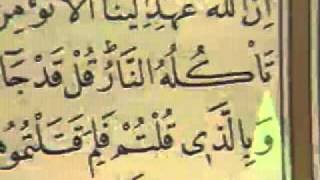 اِنَّ اللّٰهَ عَهِدَ اِلَيْنَا اَلَّا نُؤْمِنَ
تَأْكُلُهُ النَّارُ قُلْ قَدْ جَآ
وَبِالَّذِي قُلْتُمْ فَلِمَ قَتَلْتُمُوهُ